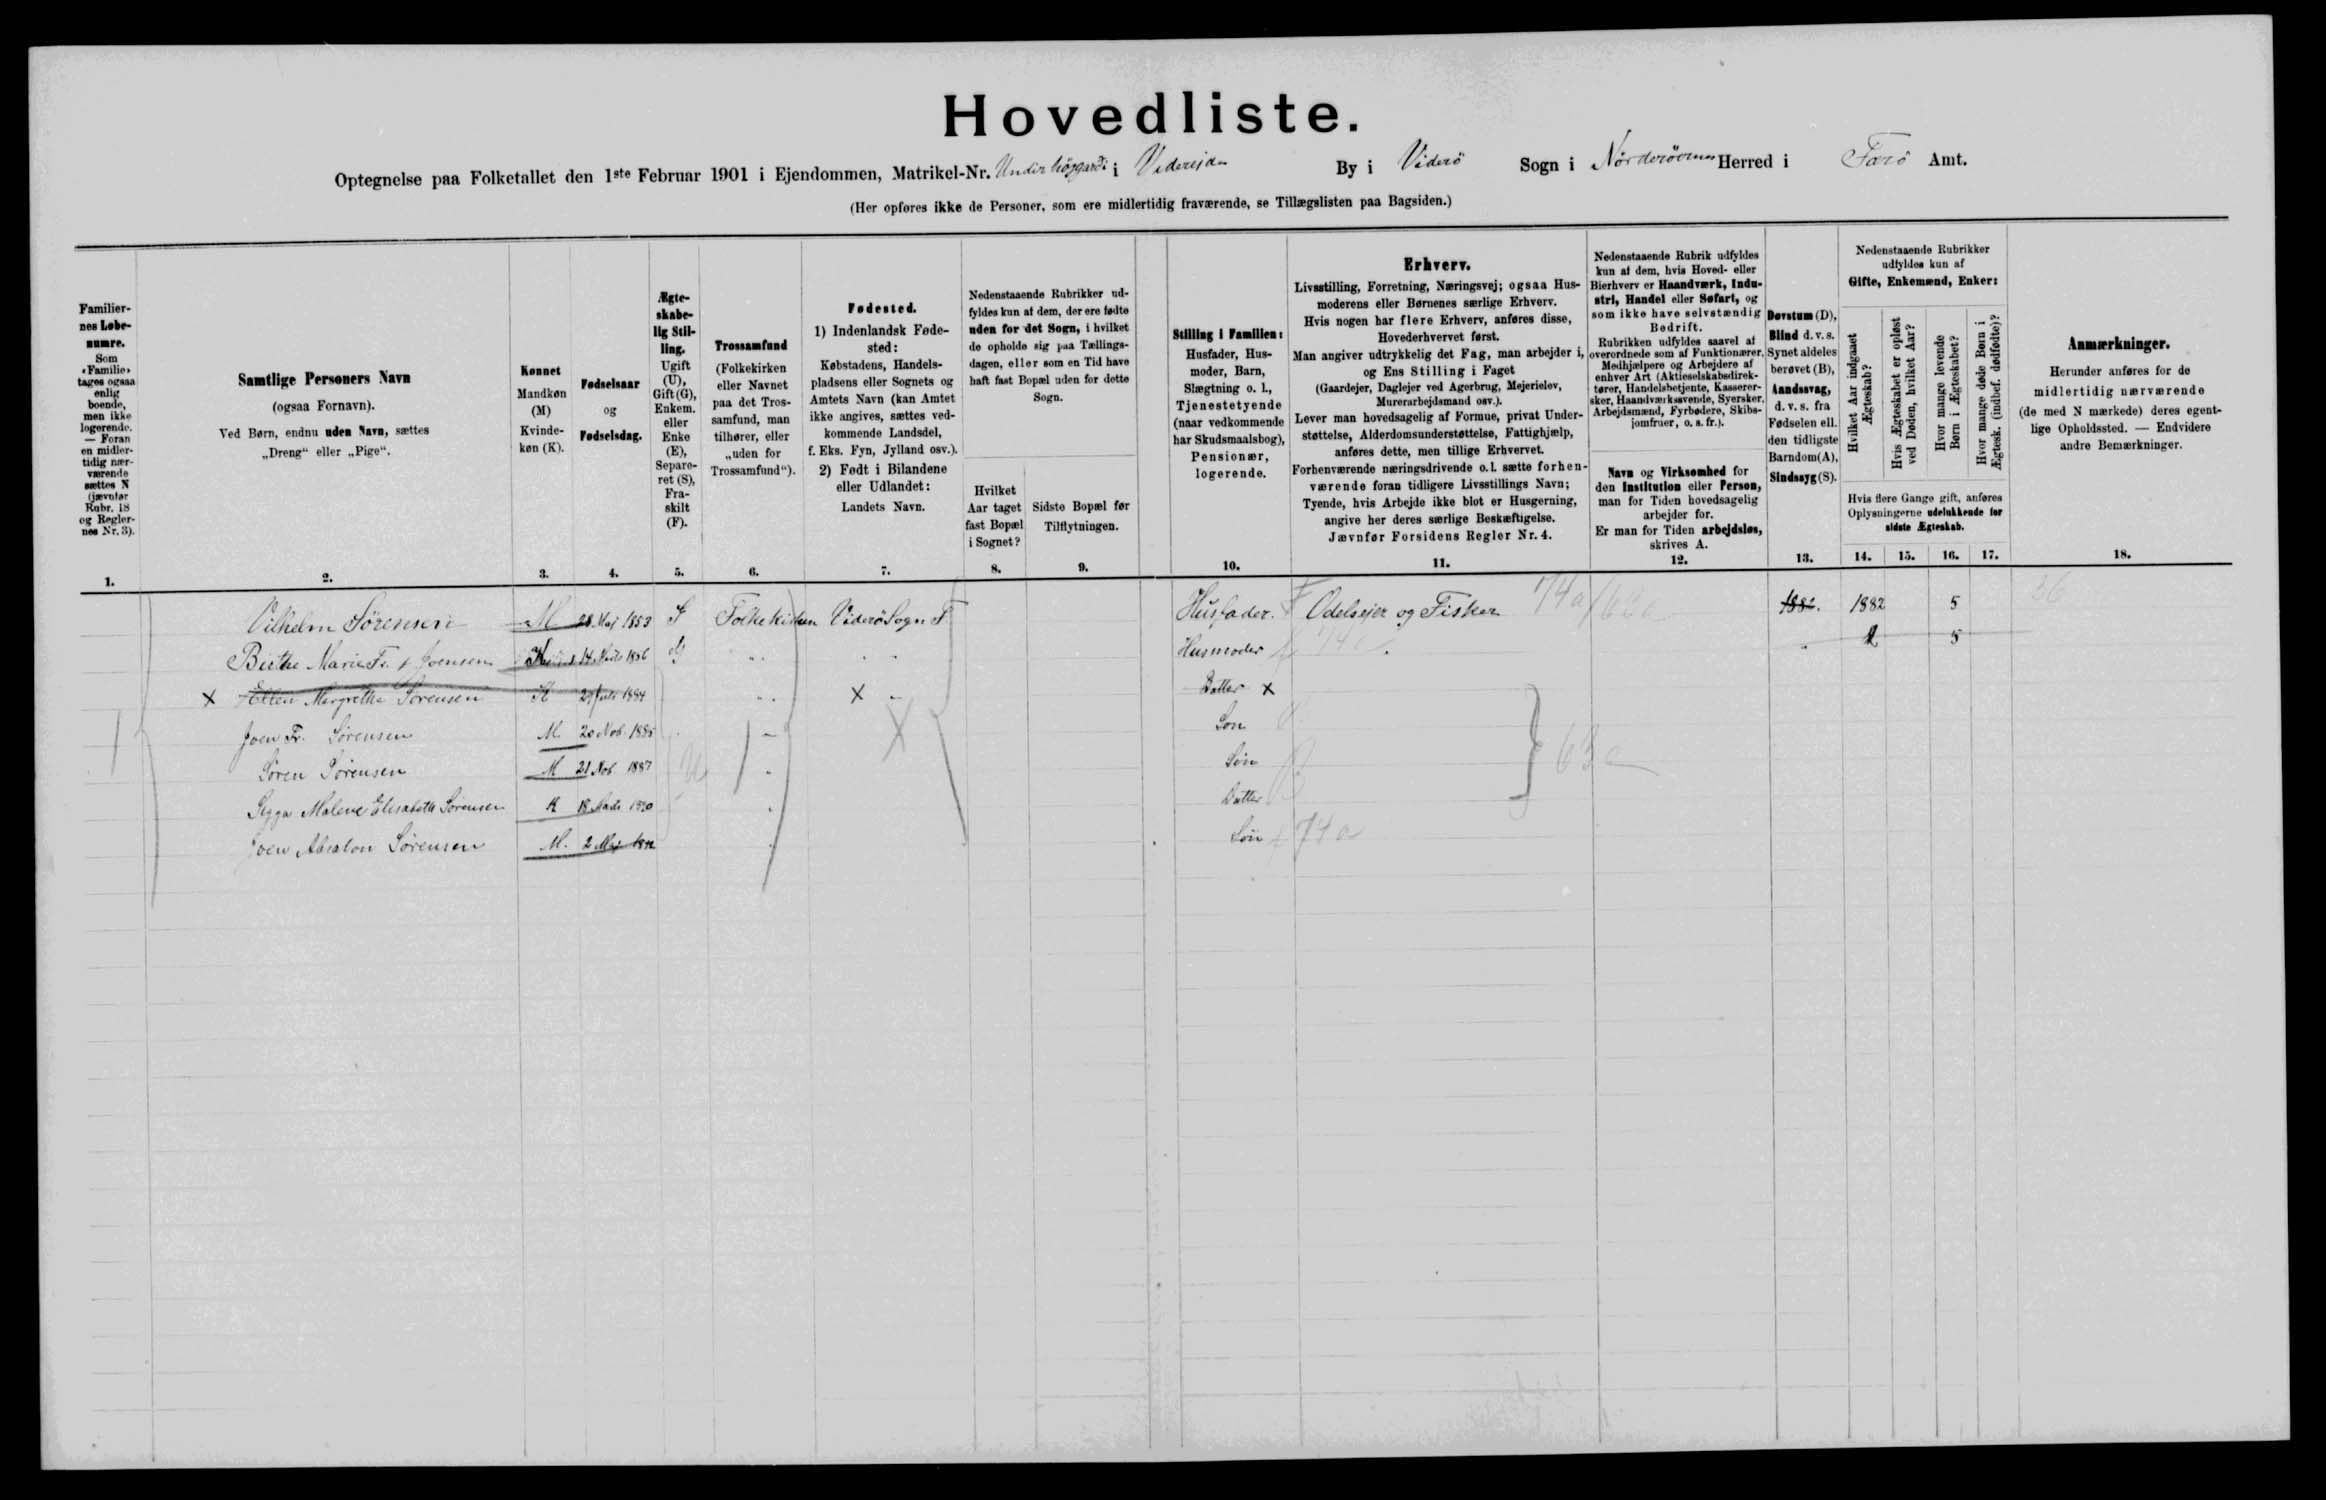 Hovedliste.
Optegnelse paa Folketallet den 1ste Februar 1901 i Ejendommen, Matrikel-Nr. i Viderejde By i Viderö Sogn i Nórderöernes Herred i Færö Amt.
(Her opføres ikke de Personer, som ere midlertidig fraværende, se Tillægslisten paa Bagsiden.)
Familier-
nes Løbe-
numre.
Som
«Familie»
tages ogsaa
enlig
boende,
men ikke
logerende.
— Foran
en midler-
tidig nær-
værende
sættes N
(jævnfør
Rubr. 18
og Regler-
nes Nr. 3).
1.
Samtlige Personers Navn
(ogsaa Fornavn).
Ved Børn, endnu uden Navn, sættes
„Dreng“ eller „Pige“.
2.
Kønnet
Mandkøn
(M)
Kvinde-
køn (K).
3.
Fødselsaar
og
Fødselsdag.
4.
Ægte-
skabe-
lig Stil-
ling.
Ugift
(U),
Gift (G),
Enkem.
eller
Enke
(E),
Separe-
ret (S),
Fra-
skilt
(F).
5.
Trossamfund
(Folkekirken
eller Navnet
paa det Tros-
samfund, man
tilhører, eller
„uden for
Trossamfund“).
6.
Fødested.
1) Indenlandsk Føde-
sted:
Købstadens, Handels-
pladsens eller Sognets og
Amtets Navn (kan Amtet
ikke angives, sættes ved-
kommende Landsdel,
f. Eks. Fyn, Jylland osv.).
2) Født i Bilandene
eller Udlandet:
Landets Navn.
7.
Nedenstaaende Rubrikker ud-
fyldes kun af dem, der ere fødte
uden for det Sogn, i hvilket
de opholde sig paa Tællings-
dagen, eller som en Tid have
haft fast Bopæl uden for dette
Sogn.
Hvilket
Aar taget
fast Bopæl
i Sognet?
8.
Sidste Bopæl før
Tilflytningen.
9.
Stilling i Familien:
Husfader, Hus-
moder, Barn,
Slægtning o. l.,
Tjenestetyende
(naar vedkommende
har Skudsmaalsbog),
Pensionær,
logerende.
10.
Erhverv.
Livsstilling, Forretning, Næringsvej; ogsaa Hus-
moderens eller Børnenes særlige Erhverv.
Hvis nogen har flere Erhverv, anføres disse,
Hovederhvervet først.
Man angiver udtrykkelig det Fag, man arbejder i,
og Ens Stilling i Faget
(Gaardejer, Daglejer ved Agerbrug, Mejerielev,
Murerarbejdsmand osv.).
Lever man hovedsagelig af Formue, privat Under-
støttelse, Alderdomsunderstøttelse, Fattighjælp,
anføres dette, men tillige Erhvervet.
Forhenværende næringsdrivende o. l. sætte forhen-
værende foran tidligere Livsstillings Navn;
Tyende, hvis Arbejde ikke blot er Husgerning,
angive her deres særlige Beskæftigelse.
Jævnfør Forsidens Regler Nr. 4.
11.
Nedenstaaende Rubrik udfyldes
kun af dem, hvis Hoved- eller
Bierhverv er Haandværk, Indu-
stri, Handel eller Søfart, og
som ikke have selvstændig
Bedrift.
Rubrikken udfyldes saavel af
overordnede som af Funktionærer,
Medhjælpere og Arbejdere af
enhver Art (Aktieselskabsdirek-
tører, Handelsbetjente, Kasserer-
sker, Haandværkssvende, Syersker,
Arbejdsmænd, Fyrbødere, Skibs-
jomfruer, o. s. fr.).
Navn og Virksomhed for
den Institution eller Person,
man for Tiden hovedsagelig
arbejder for.
Er man for Tiden arbejdsløs,
skrives A.
12.
Døvstum (D),
Blind d. v. s.
Synet aldeles
berøvet (B),
Aandssvag,
d. v. s. fra
Fødselen ell.
den tidligste
Barndom (A),
Sindssyg (S).
13.
Nedenstaaende Rubrikker
udfyldes kun af
Gifte, Enkemænd, Enker:
Hvilket Aar indgaaet
Ægteskab?
Hvis Ægteskabet er opløst
ved Døden, hvilket Aar?
Hvor mange levende
Børn i Ægteskabet?
Hvor mange døde Børn i
Ægtesk. (indbef. dødfødte)?
Hvis flere Gange gift, anføres
Oplysningerne udelukkende for
sidste Ægteskab.
14. 15. 16. 17.
Anmærkninger.
Herunder anføres for de
midlertidig nærværende
(de med N mærkede) deres egent-
lige Opholdssted. — Endvidere
andre Bemærkninger.
18.
Vilhelm Sörensen M 28 Maj 1853 Folkekirken Viderö Sogn F. Husfader. F Odelsejer og Fisker 74a 1882. 1882 5 36
Birthe Marie Fr. f Joensen K 14 1856 G " " Husmoder f 74a 5
X Ellen Margrethe Sörensen K 29 Juli 1884 " X " Datter X
Joen Fr. Sörensen M 20 Nob. 1885 Sön
1 Sören Sörensen M 21 Nob. 1887 U 1 X Sön 63a
Sigga Malene Elisabeth Sörensen K 18 1890 Datter
Joen Absalon Sörensen M. 2 Maj Sön f 74a